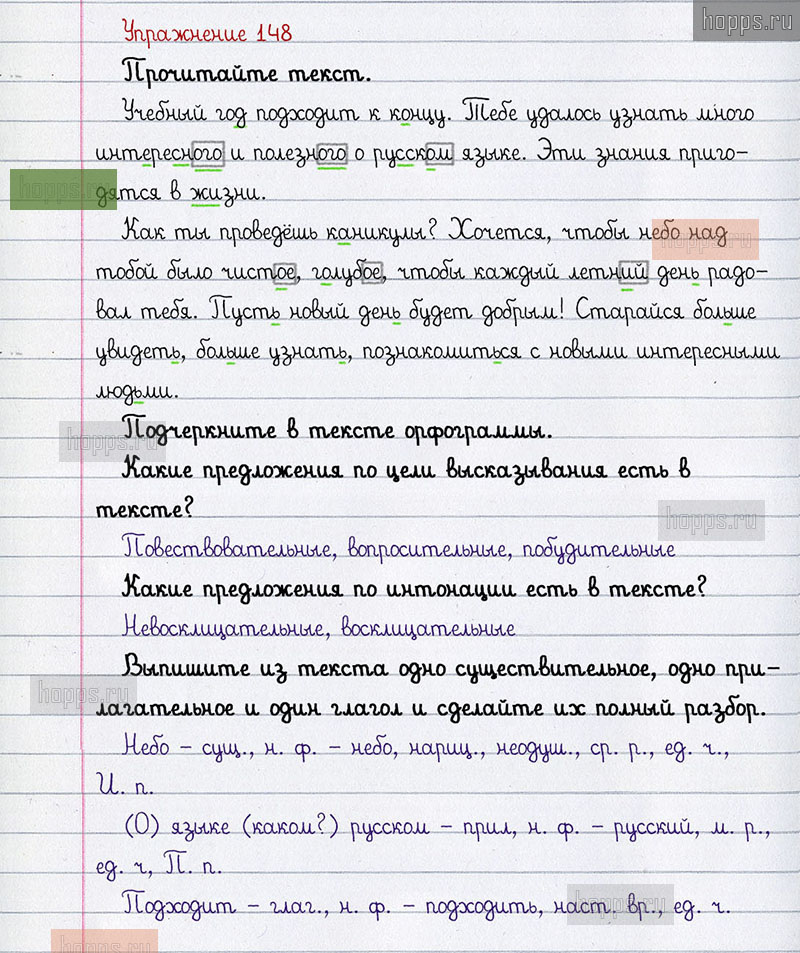 hopps.ru
Упражнение 148
Прочитайте текст.
Учебный год подходит к концу. Тебе удалось узнать много
интересного и полезного о русском языке. Эти знания приго-
hopps.ru
дятся в жизни.
Как ты проведёшь каникулы? Хочется, чтобы небо над
hopps.ru
тобой было чистое, голубое, чтобы каждый летний день радо-
вал тебя. Пусть новый день будет добрым! Старайся больше
увидеть, больше узнать, познакомиться с новыми интересными
людьми.
Подчеркните в тексте орфограммы.
hopps.ru
Какие предложения по цели высказывания есть в
тексте?
hopps.ru
Повествовательные, вопросительные, побудительные
Какие предложения по интонации есть в тексте?
Невосклицательные, восклицательные
Выпишите из текста одно существительное, одно при-
hopps.ru
лагательное и один глагол и сделайте их полный разбор.
Небо – сущ., н. ф. – небо, нариц., неодуш., ср. р., ед. ч.,
И. п.
(О) языке (каком?) русском – прил, н. ф. – русский, м. р.,
ед. ч, П. п.
Подходит – глаг., н. ф. – подходить, наст. вр., ед. ч.
hopps.ru
hopps.ru